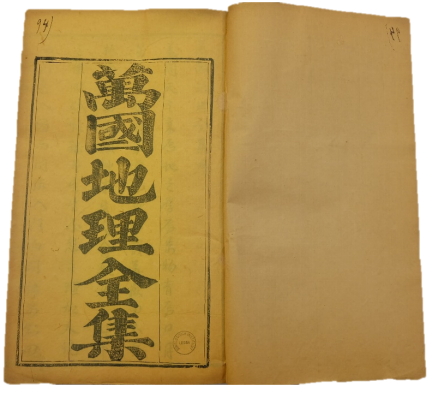 94
萬國地理全集